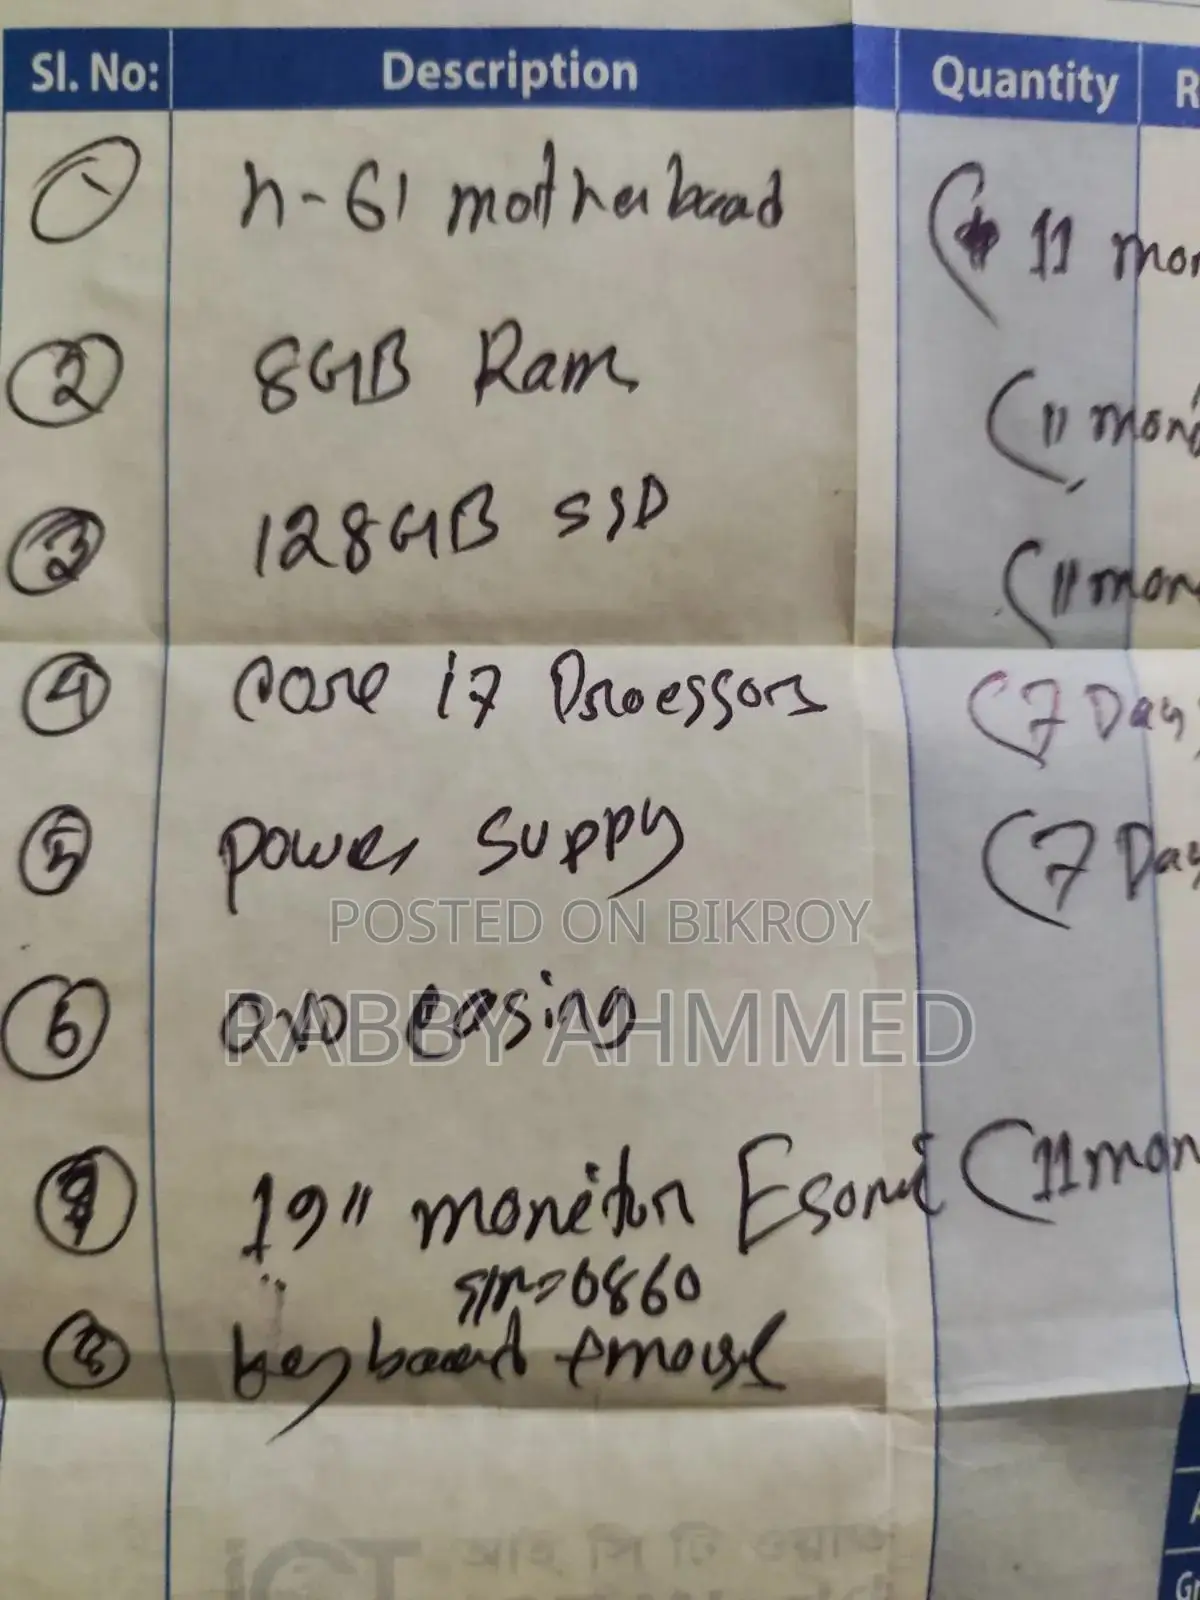 Sl. No: Description Quantity R
1 h-61 motherboard ( 11 mon
2 8GB Ram ( 11 mon
3 128GB SSD ( 11 mon
4 Core i7 Processors ( 7 Day
5 power supply ( 7 Day
POSTED ON BIKROY
6 casing
RABBY AHMMED
7 19" moneitor Esonic ( 11 mon
S/n=0860
8 keyboard + mouse